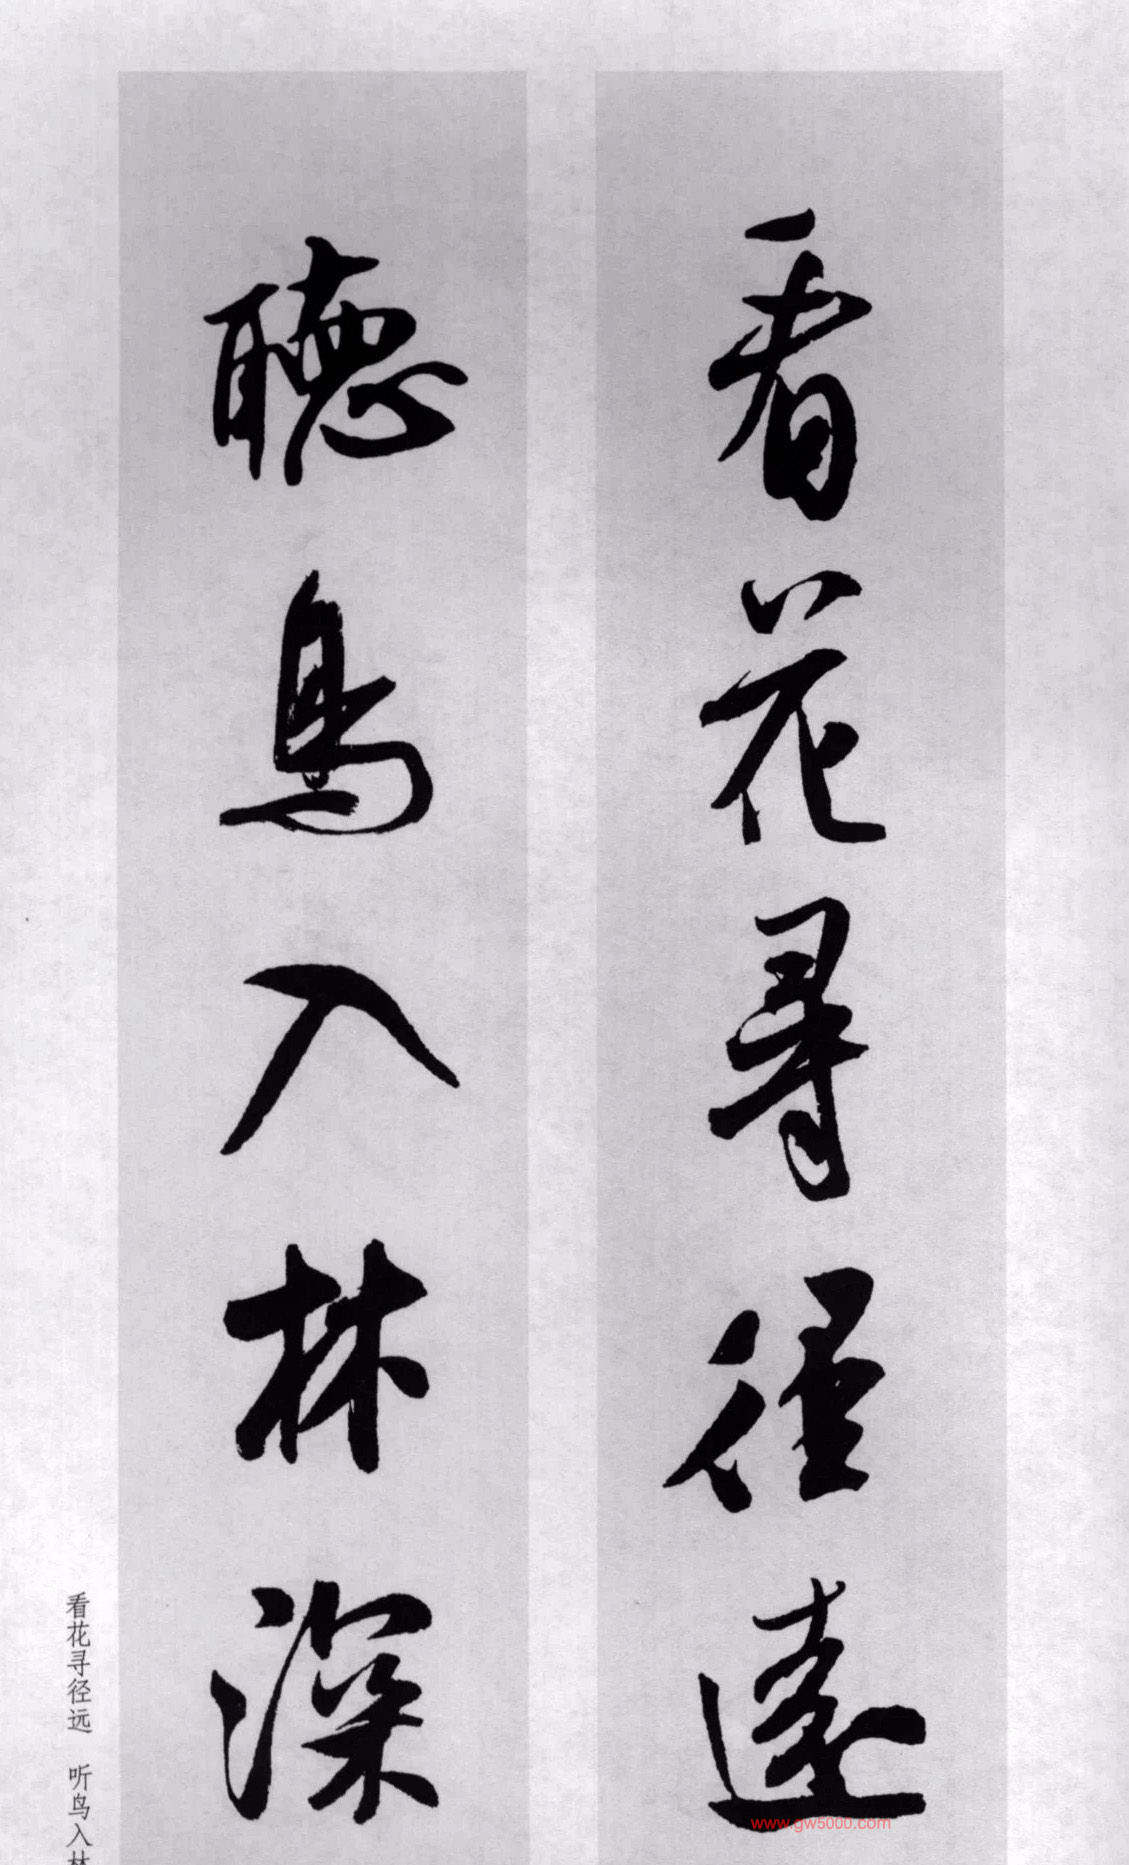 看花尋徑遠
聽鳥入林深
看花寻径远 听鸟入林
www.gw5000.com